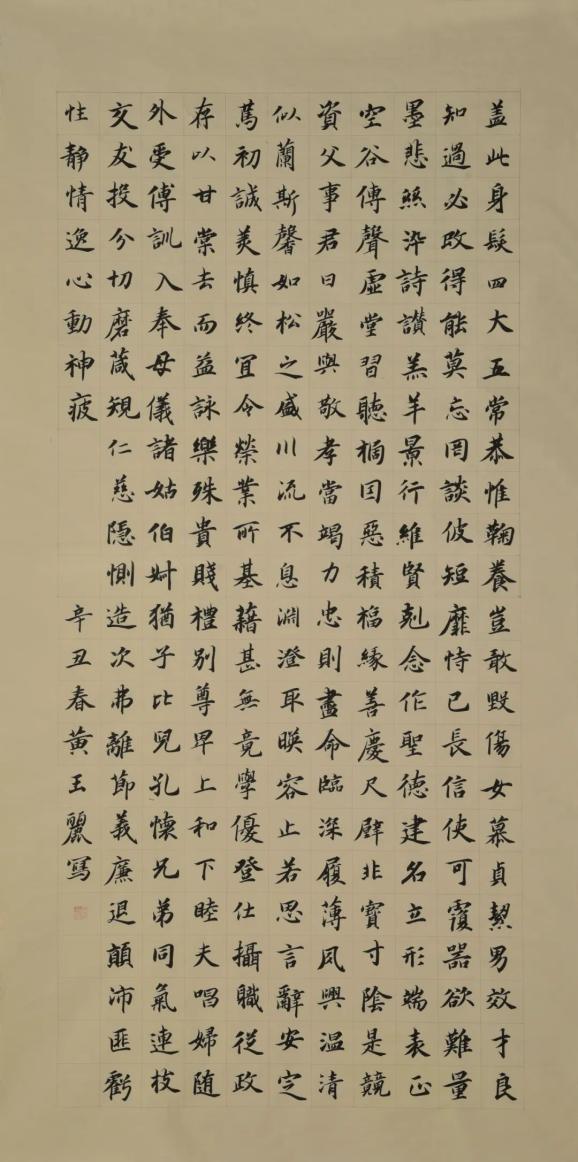 盖此身髮四大五常恭惟鞠養豈敢毀傷女慕貞絜男效才良
知過必改得能莫忘罔談彼短靡恃己長信使可覆器欲難量
墨悲絲染詩讚羔羊景行維賢剋念作聖德建名立形端表正
空谷傳聲虛堂習聽禍因惡積福緣善慶尺璧非寶寸陰是競
資父事君曰嚴與敬孝當竭力忠則盡命臨深履薄夙興温清
似蘭斯馨如松之盛川流不息淵澄取暎容止若思言辭安定
篤初誠美慎終宜令榮業所基藉甚無竟學優登仕攝職從政
存以甘棠去而益詠樂殊貴賤禮別尊卑上和下睦夫唱婦随
外受傅訓入奉母儀諸姑伯叔猶子比兒孔懷兄弟同氣連枝
交友投分切磨箴規仁慈隱惻造次弗離節義廉退顛沛匪虧
性静情逸心動神疲
辛丑春黃王麗寫